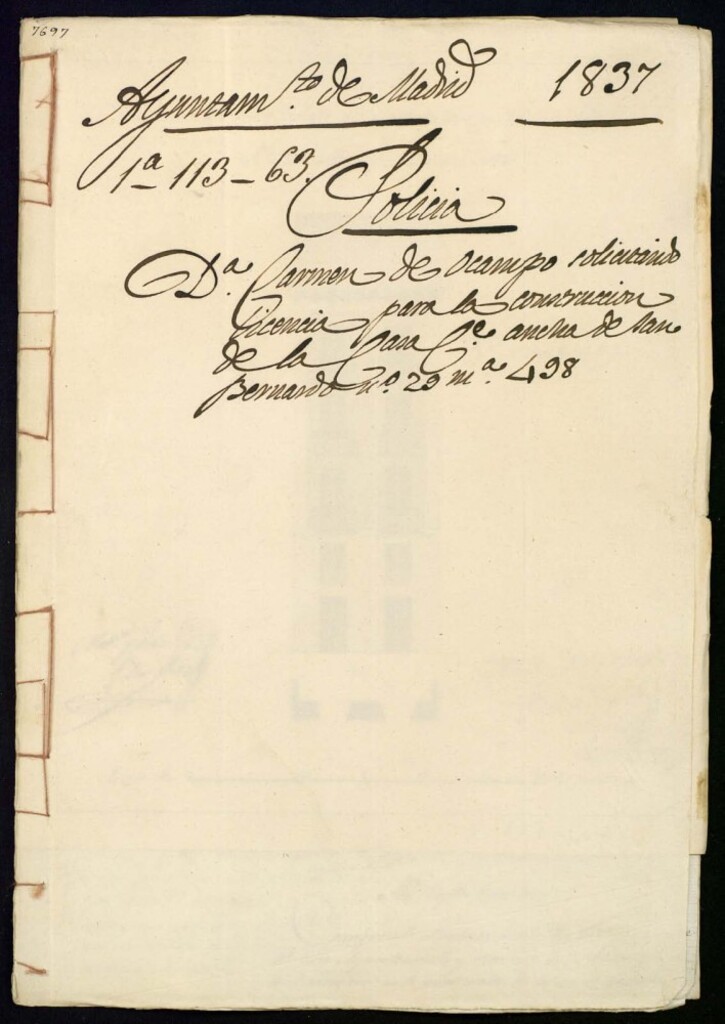 7697
Ayuntam.to de Madrid 1837
1a 113-63.
Policia
D.a Carmen de Ocampo solicitando
licencia para la construccion
de la Casa C.e ancha de San
Bernardo n.o 29 m.a 498